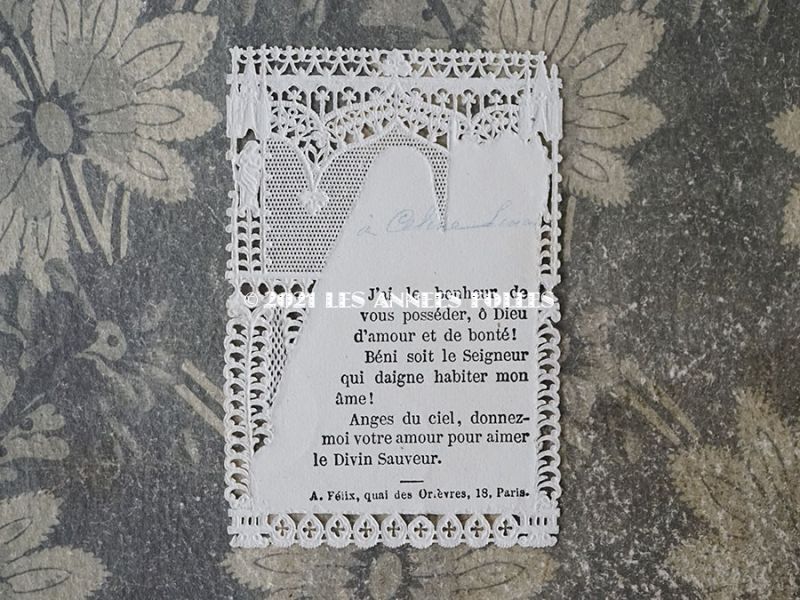 à Celine
© 2021 LES ANNÉES FOLLES
J'ai le bonheur de
vous posséder, ô Dieu
d'amour et de bonté!
Béni soit le Seigneur
qui daigne habiter mon
âme!
Anges du ciel, donnez-
moi votre amour pour aimer
le Divin Sauveur.
A. Félix, quai des Orfèvres, 18, Paris.